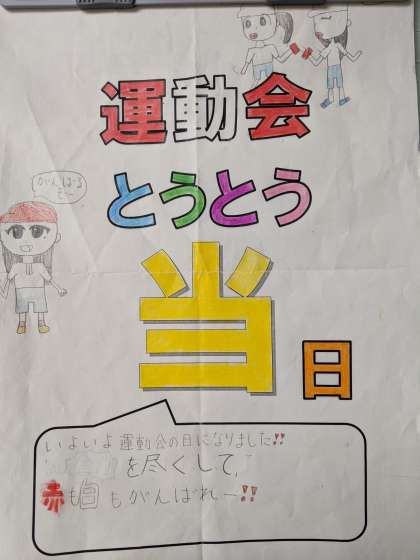 運動会
とうとう
当日
がんばる
ぞー
いよいよ運動会の日になりました!!
を尽くして、
赤も白もがんばれー!!